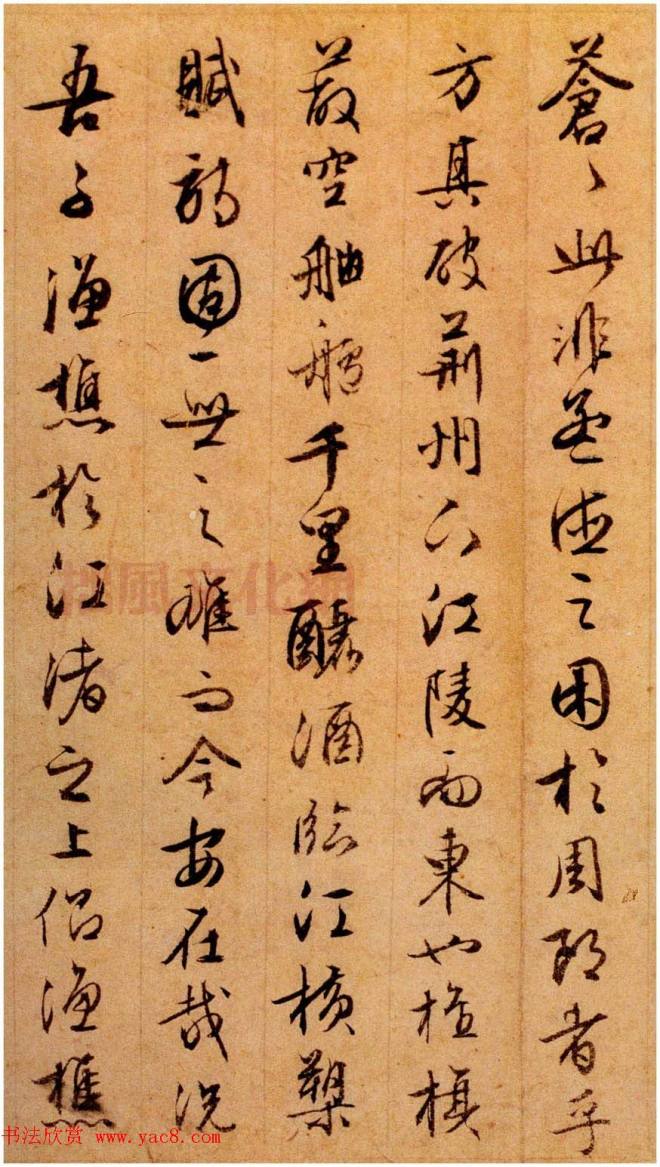 蒼〻此非孟德之困於周郎者乎
方其破荊州下江陵而東也旌旗
蔽空舳艫千里釃酒臨江橫槊
賦詩固一世之雄而今安在哉況
吾子漁樵於江渚之上侶漁樵
風文化網
书法欣赏 www.yac8.com